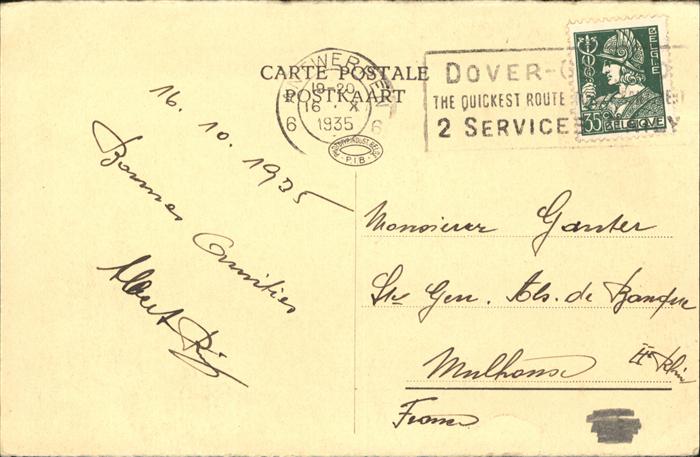 CARTE POSTALE
POSTKAART
ANTWERPEN
19-20
16 X
1935
6 6
P.I.B.
DOVER-
THE QUICKEST ROUTE
2 SERVICE
BELGIE
35c
BELGIQUE
16. 10. 1935
Bonnes Amitiés
Albert
Monsieur Ganter
Ste Gen. Als. de Banque
Mulhouse Ht Rhin
France